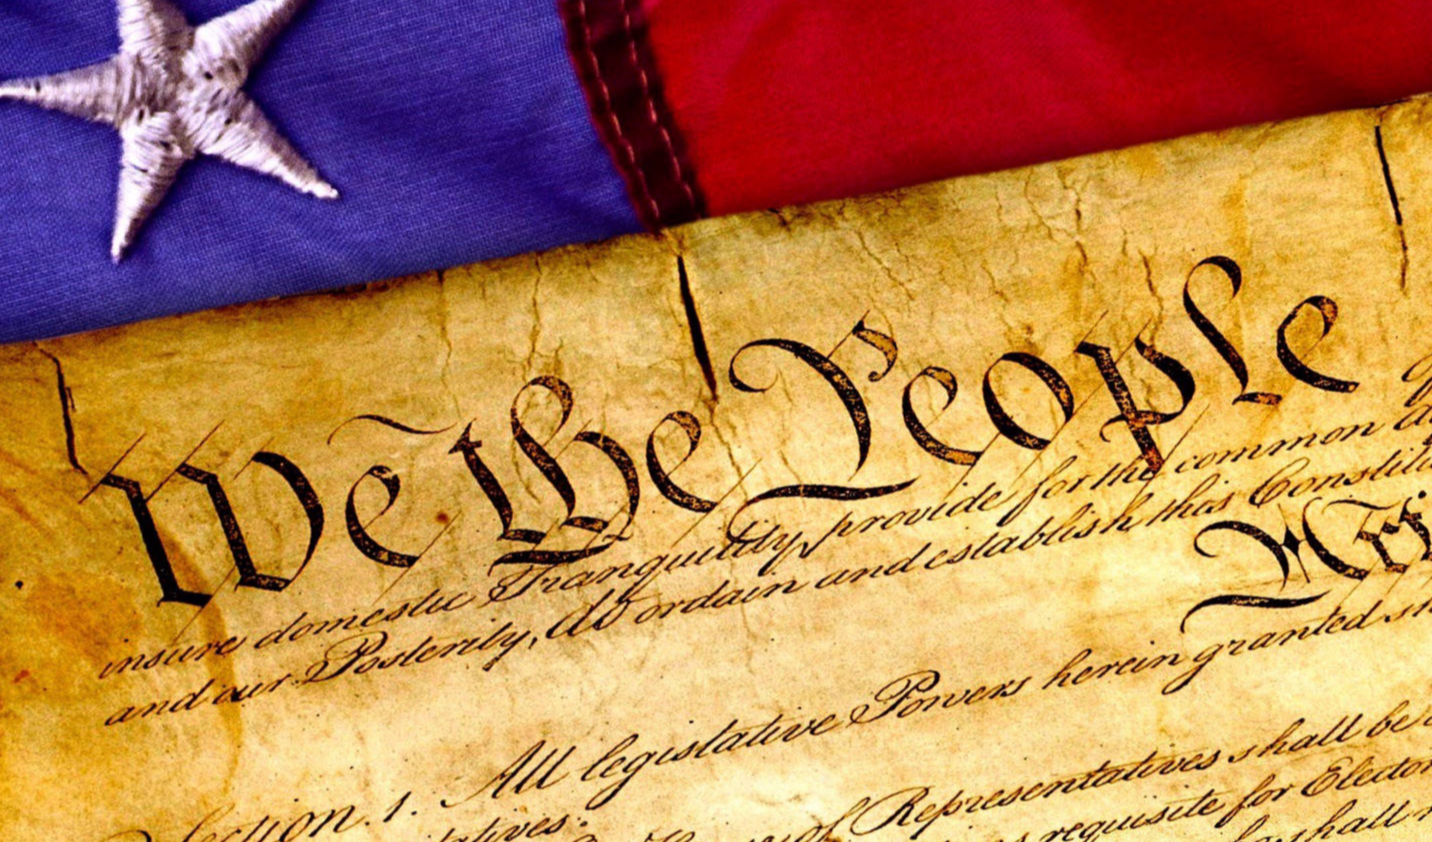 We the People
insure domestic Tranquility, provide for the common
and our Posterity, do ordain and establish this
Section. 1. All legislative Powers herein granted
of Representatives shall be
requisite for
shall